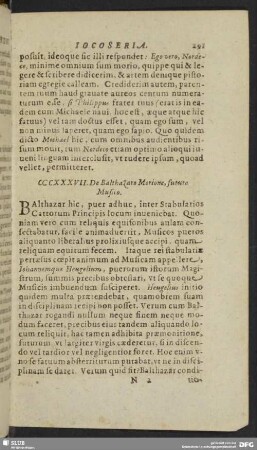 IOCOSERIA. 291
posuit. ideoque sic illi respondet: Ego vero, Norde-
ce, minime omnium sum morio, quippe qui & le-
gere & scribere didicerim. & artem denique pistoriam
egregie calleam. Crediderim autem, paren-
tem tuum haud gravate aureos centum numera-
turum esse. si Philippus frater tuus (erat is in ea-
dem cum Michaele navi, hoc est, æque atque hic
fatuus) vel tam doctus esset, quam ego sum, vel
non minus saperet, quam ego sapio. Quo quidem
dicto Michael hic, cum omnibus audientibus ri-
sum movit, cum Nordeco etiam optimo alioqui iu-
veni linguam interclusit, ut rudere ipsum, quoad
vellet, permitteret.
CCCXXXVII. De Balthazaro Morione, futuro
Musico.
BAlthazar hic, puer adhuc, inter Stabularios
Cattorum Principis locum inveniebat. Quo-
niam vero cum reliquis equisonibus aulam con-
sectabatur, facile animadvertit, Musicos pueros
aliquanto liberalius prolixiusque accipi, quam
reliquam equitum fecem. Itaque rei stabulariæ
pertæsus cœpit animum ad Musicam appellere,
Johannemque Heugelium, puerorum istorum Magi-
strum, summis precibus obtestari, ut se quoque
Musicis imbuendum susciperet. Heugelius initio
quidem multa prætendebat, quamobrem suam
in disciplinam recipi non posset. Verum cum Bal-
thazar rogandi nullum neque finem neque mo-
dum faceret, precibus eius tandem aliquando lo-
cum reliquit, hac tamen adhibita præmonitione,
futurum, ut largiter virgis cæderetur, si in discen-
do vel tardior vel negligentior foret. Hoc cum vi-
vose facturum absterriturum putabat, ut ne in disci-
plinam se daret. Verum quid sit? Balthazar condi-
N 2 tio-
SLUB
DFG